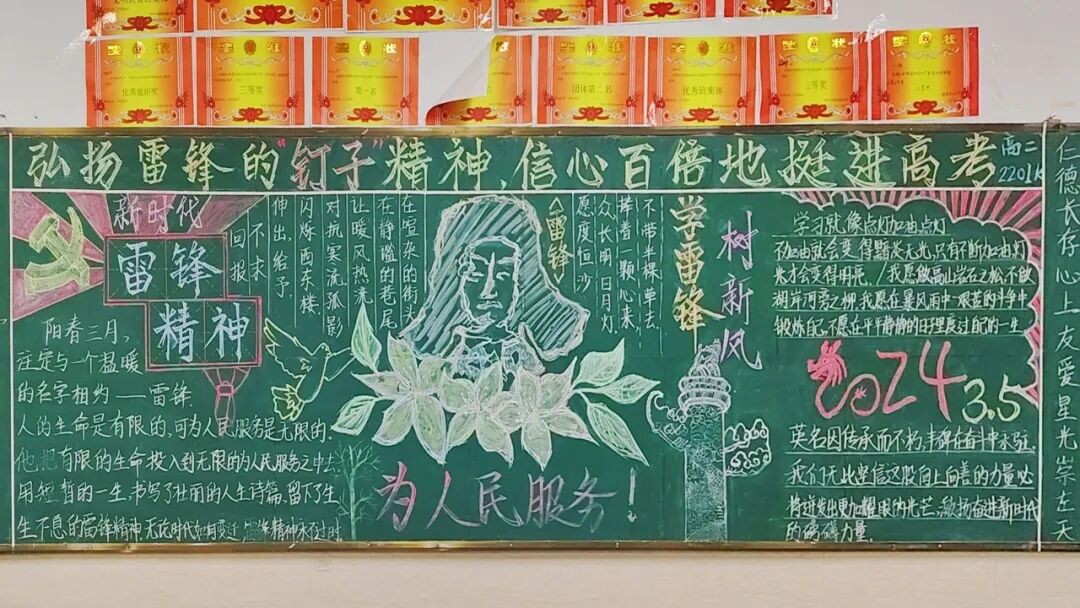 奖状 奖状 奖状 奖状 奖状 奖状 奖状
优秀班组奖
三等奖
第一名
团体第二名
优秀班集体
三等奖
二等奖
弘扬雷锋的“钉子”精神、信心百倍地挺进高考
高二
2201
新时代
雷锋
精神
阳春三月,
注定与一个温暖
的名字相约——雷锋.
人的生命是有限的,可为人民服务是无限的.
他把有限的生命投入到无限的为人民服务之中去.
用短暂的一生,书写了壮丽的人生诗篇,留下了生
生不息的雷锋精神,无论时代如何变迁 雷锋精神永不过时.
《雷锋》
不带半棵草去,
捧着一颗心来
众长明日月灯
愿度恒沙
在喧杂的街头
在静谧的巷尾
让暖风热流
对抗寒流孤影
闪烁西东楼
伸出,给予
不求
回报
为人民服务!
学雷锋
树新风
学习就像点灯加油点灯
加油就会变得颗发光,只有不断加油,灯
光才会变得明亮.我愿做高山岩石之松,不做
湖岸河旁之柳.我愿在暴风雨中艰苦的斗争中
锻炼自己,不愿在平平静静的日子里度过自己的一生
2024
3.5
英名因传承而不朽,丰碑在奋斗中永驻.
我们无比坚信这股向上向善的力量必
将迸发出更加耀眼的光芒、激扬奋进新时代
的磅礴力量.
仁德长存心上友爱星光崇左天